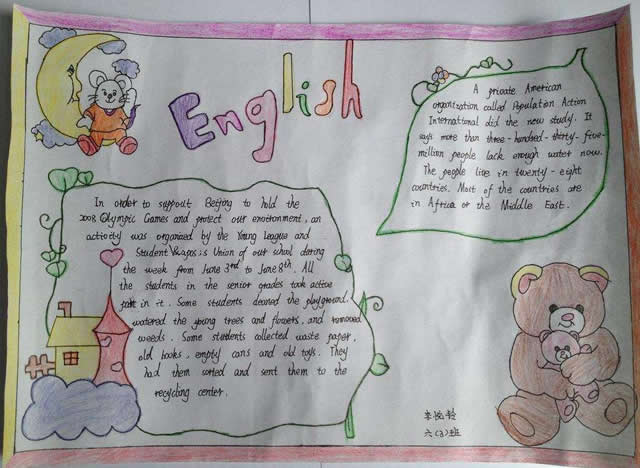 English
A private American
organization called Population Action
International did the new study. It
says more than three-hundred-thirty-five-
million people lack enough water now.
The people live in twenty-eight
countries. Most of the countries are
in Africa or the Middle East.
In order to support Beijing to hold the
2008 Olympic Games and protect our environment, an
activity was organized by the Young League and
Student Union of our school during
the week from June 3rd to June 8th. All
the students in the senior grades took active
part in it. Some students cleaned the playground,
watered the young trees and flowers, and removed
weeds. Some students collected waste paper,
old books, empty cans and old toys. They
had them sorted and sent them to the
recycling center.
六(3)班